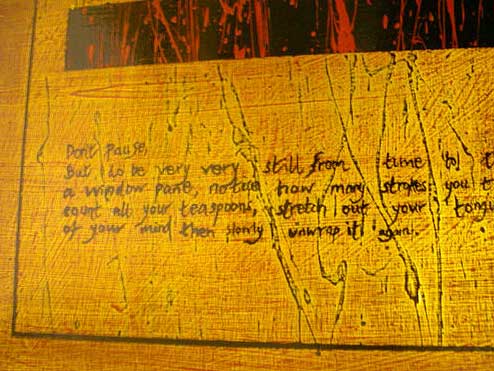 Dont pause,
But to be very very still from time to t
a window pane, notice how many strokes you t
count all your teaspoons, stretch out your tongu
of your mind then slowly unwrap it again.